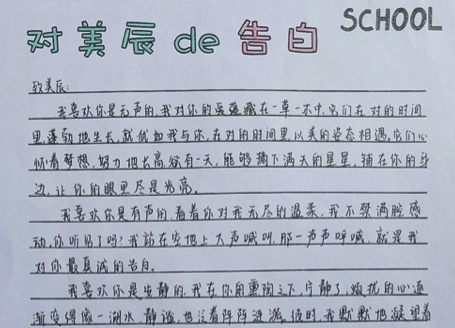 SCHOOL
对美辰de告白
致美辰:
我喜欢你是无声的,我对你的爱蕴藏在一草一木中,它们在对的时间
里蓬勃地生长,就优如我与你,在对的时间里,以美的姿态相遇,它们心
怀着梦想,努力地长高,终有一天,能够摘下满天的星星,铺在你的身
边,让你的眼里尽是光亮。
我喜欢你是有声的,看着你对我无尽的温柔,我不禁满腔感
动,你听见了吗?我站在空地上大声喊叫,那一声声呼喊,就是我
对你最真诚的告白。
我喜欢你是安静的,我在你的熏陶之下,宁静了,烦扰的心逐
渐变得像一湖水,静谧,也泛着阵阵涟漪,彼时,我默默地凝望着